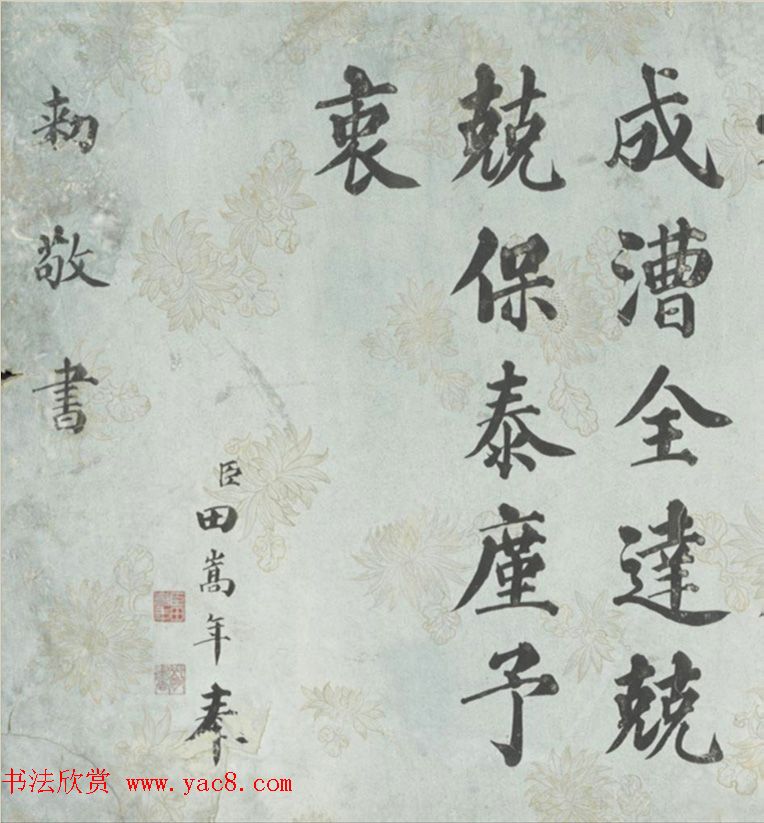 成漕全達兢
兢保泰廑予
衷
臣田嵩年奉
勑敬書
书法欣赏 www.yac8.com